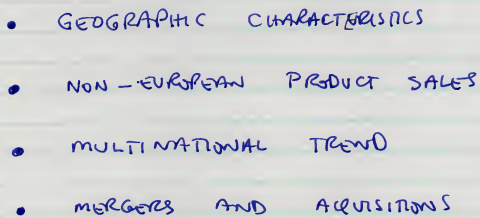 • GEOGRAPHIC CHARACTERISTICS
• NON-EUROPEAN PRODUCT SALES
• MULTINATIONAL TREND
• MERGERS AND ACQUISITIONS